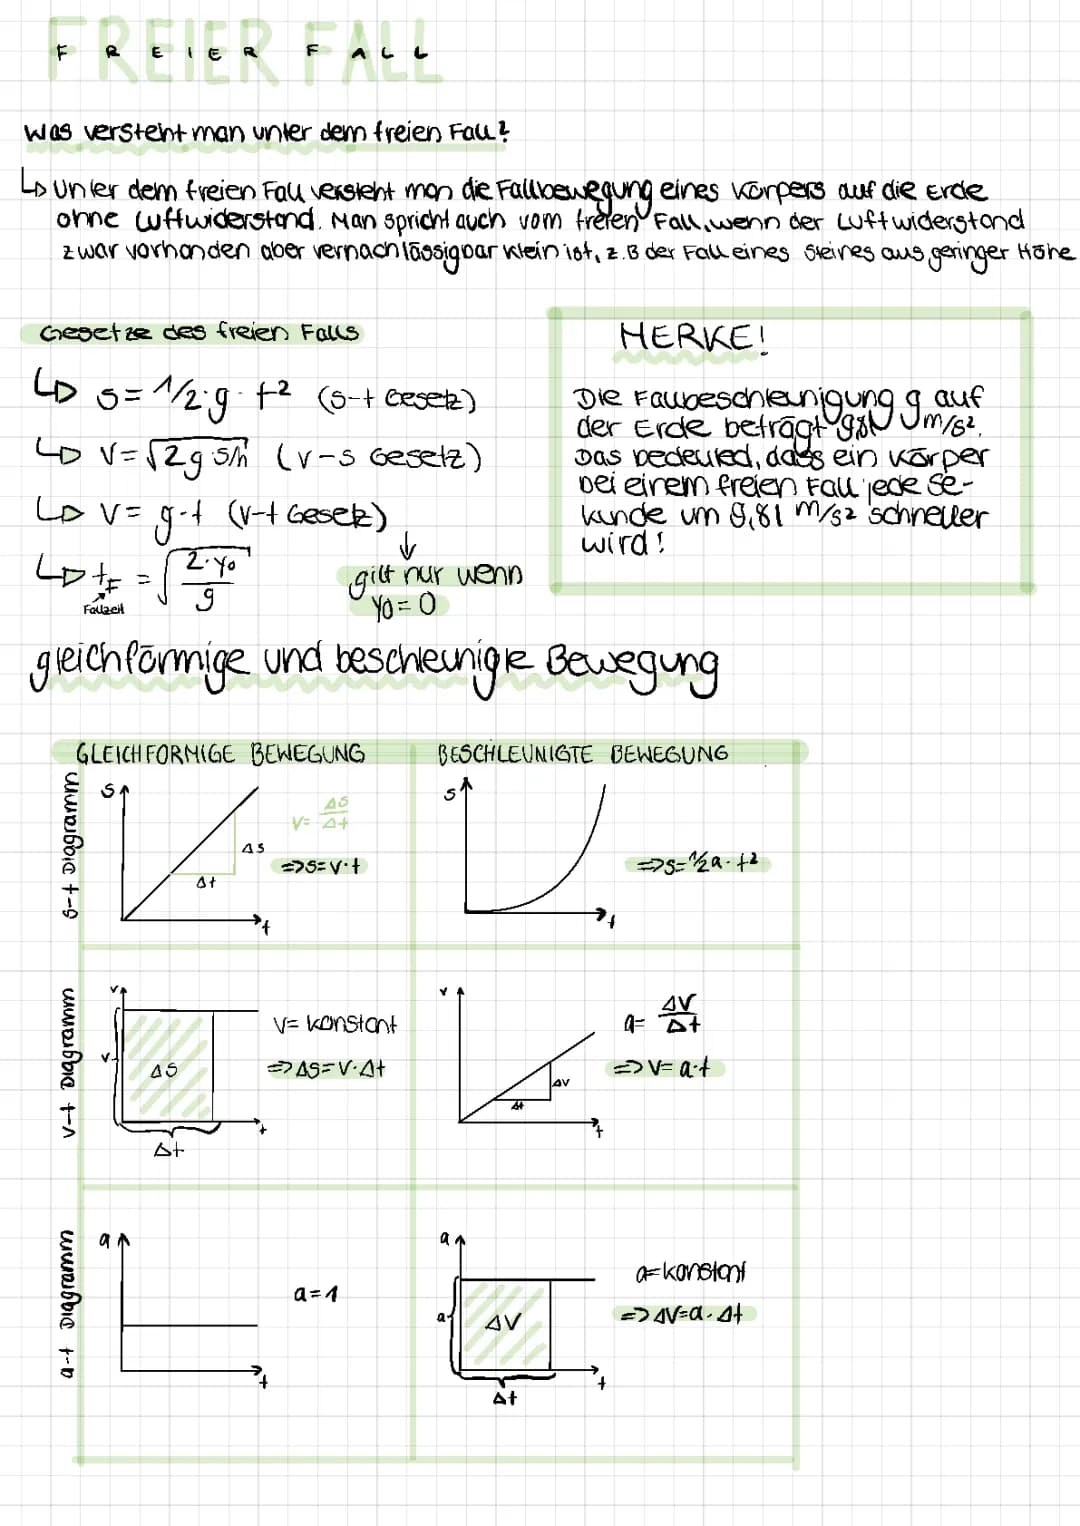 FREIER FALL
FREIER FALL
Was versteht man unter dem freien Fall?
↳ Unter dem freien Fall versteht man die Fallbewegung eines Körpers auf die Erde
ohne Luftwiderstand. Man spricht auch vom freien Fall, wenn der Luftwiderstand
zwar vorhanden aber vernachlässigbar klein ist, z.B der Fall eines Steines aus geringer Höhe
Gesetze des freien Falls
↳ s = 1/2·g·t² (s-t Gesetz)
↳ v = √2g s/h (v-s Gesetz)
↳ v = g·t (v-t Gesetz)
↳ tF = √2·y0/g
Fallzeit
↓
gilt nur wenn
y0 = 0
MERKE!
Die Fallbeschleunigung g auf
der Erde beträgt 9,81 m/s².
Das bedeuted, dass ein Körper
bei einem freien Fall jede Se-
kunde um 9,81 m/s² schneller
wird!
gleichförmige und beschleunigte Bewegung
GLEICHFÖRMIGE BEWEGUNG
BESCHLEUNIGTE BEWEGUNG
s-t Diagramm
s
v = Δs/Δt
Δs
=> s = v·t
Δt
t
s
=> s = 1/2 a·t²
t
v-t Diagramm
v
v = konstant
v
Δs
=> Δs = v·Δt
t
Δt
v
a = Δv/Δt
=> v = a·t
Δv
Δt
t
a-t Diagramm
a
a = 1
t
a
a = konstant
a
Δv
=> Δv = a·Δt
t
Δt